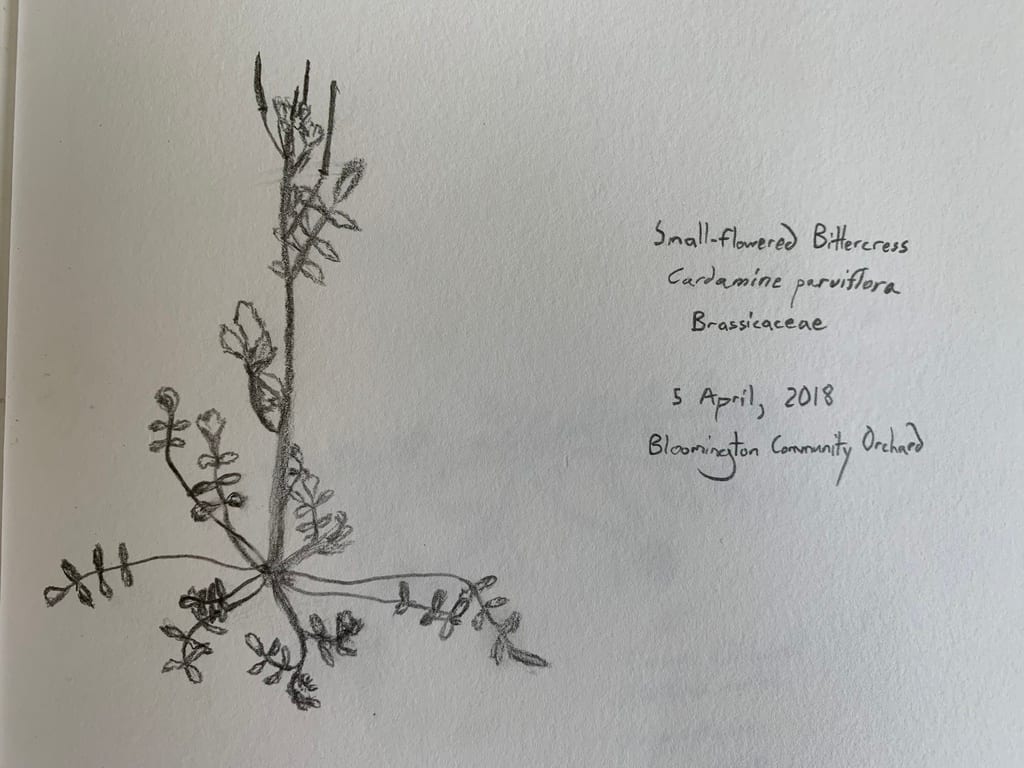 Small-flowered Bittercress
Cardamine parviflora
Brassicaceae
5 April, 2018
Bloomington Community Orchard